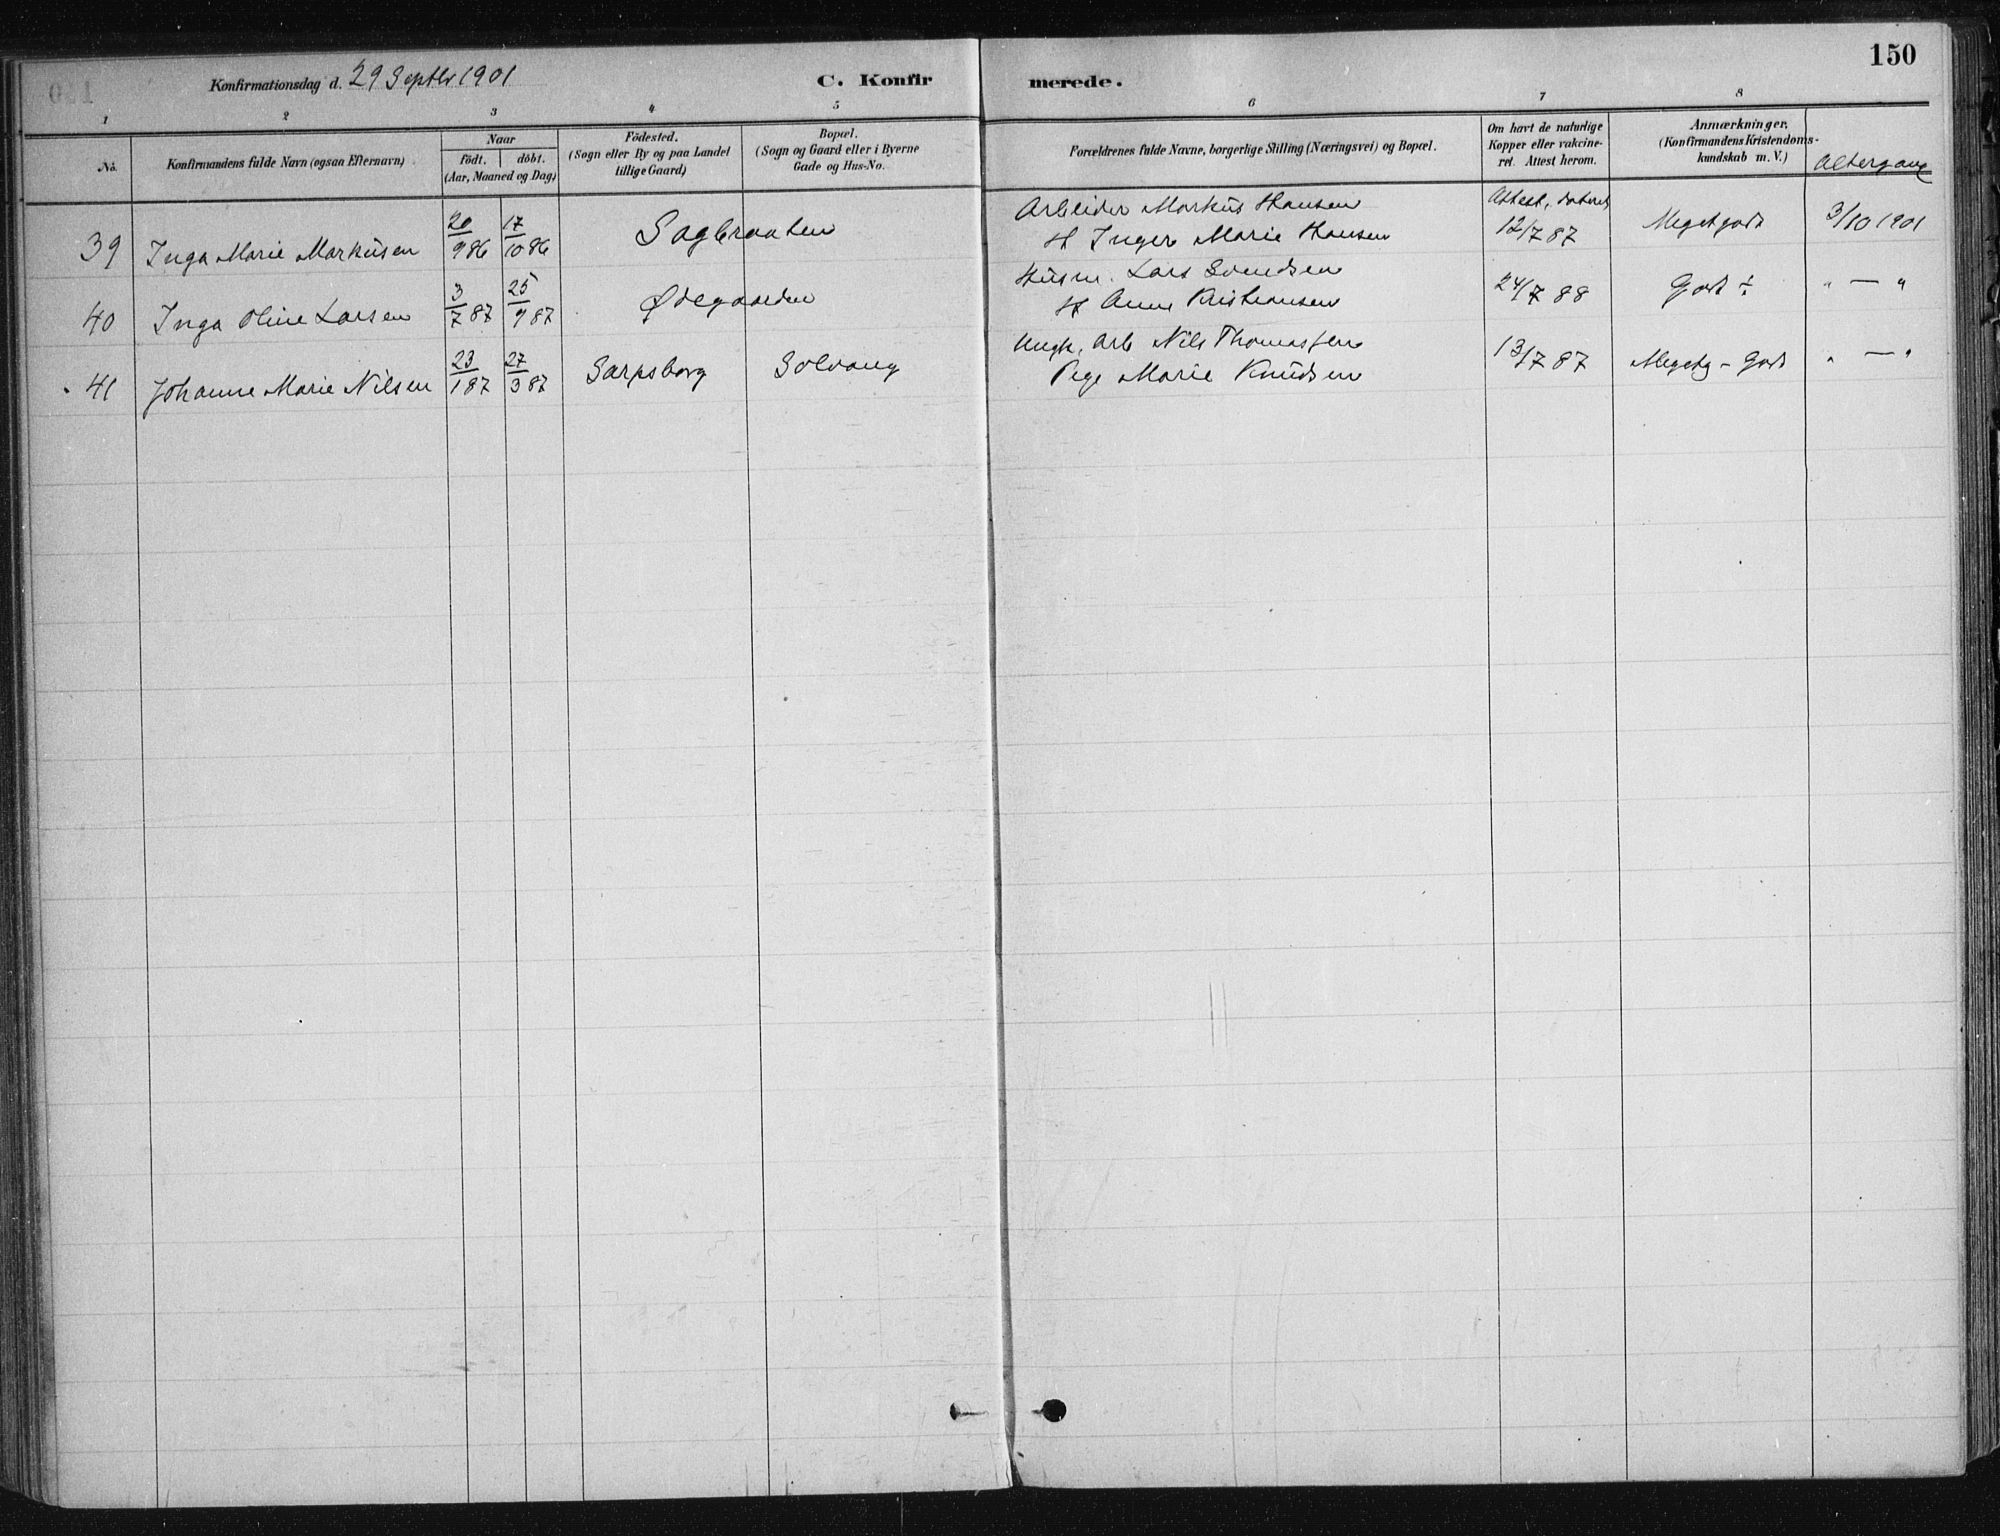 150
Konfirmationsdag d. 29 Septbr 1901
C. Konfir merede.
1 2 3 4 5 6 7 8
No.
Konfirmandens fulde Navn (ogsaa Efternavn)
Naar
födt. döbt.
(Aar, Maaned og Dag)
Födested.
(Sogn eller By og paa Landet
tillige Gaard)
Bopæl.
(Sogn og Gaard eller i Byerne
Gade og Hus-No.
Forældrenes fulde Navne, borgerlige Stilling (Næringsvei) og Bopæl.
Om havt de naturlige
Kopper eller vakcine-
ret. Attest herom.
Anmærkninger,
(Konfirmandens Kristendoms-
kundskab m. V.)
Altergang
Arbeider Markus Hansen Attest, dateret
39 Inga Marie Markusen 20/9 86 17/10 86 Sagbraaten H Inger Marie Hansen 12/7 87 Megetgodt 3/10 1901
Husm. Lars Svendsen
40 Inga Oline Larsen 3/7 87 25/9 87 Ødegaarden H Anne Kristiansen 24/7 88 Godt ÷ " — "
Ungk. Arb Nils Thomassen
41 Johanne Marie Nilsen 23/1 87 27/3 87 Sarpsborg Solvang Pige Marie Knudsen 13/7 87 Megetg - Godt " — "